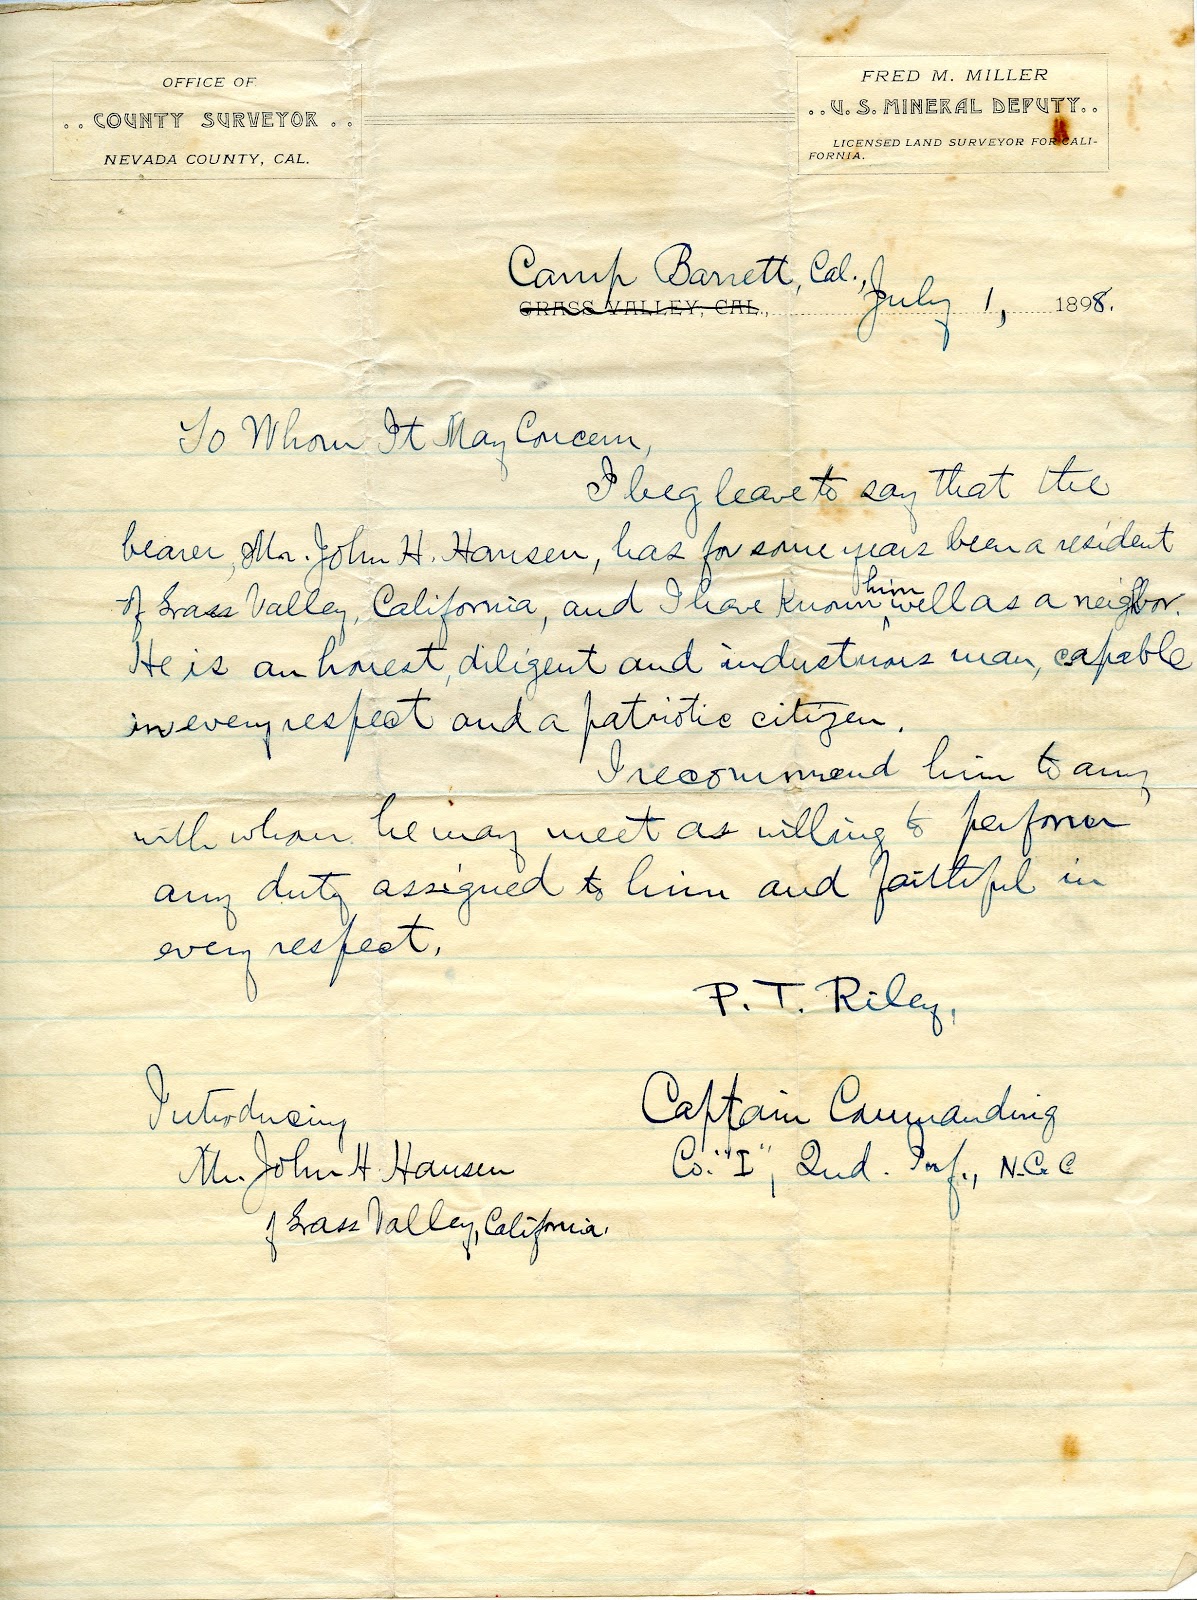 OFFICE OF
.. COUNTY SURVEYOR ..
NEVADA COUNTY, CAL.
FRED M. MILLER
..U. S. MINERAL DEPUTY..
LICENSED LAND SURVEYOR FOR CALI-
FORNIA.
Camp Barrett, Cal.,
GRASS VALLEY, CAL., July 1, 1898.
To Whom It May Concern,
I beg leave to say that the
bearer, Mr. John H. Hansen, has for some years been a resident
of Grass Valley, California, and I have known him well as a neighbor.
He is an honest, diligent and industrious man, capable
in every respect and a patriotic citizen.
I recommend him to any
with whom he may meet as willing to perform
any duty assigned to him and faithful in
every respect.
P. T. Riley,
Captain Commanding
Co. "I", 2nd. Inf., N.G.C
Introducing
Mr. John H. Hansen
of Grass Valley, California.